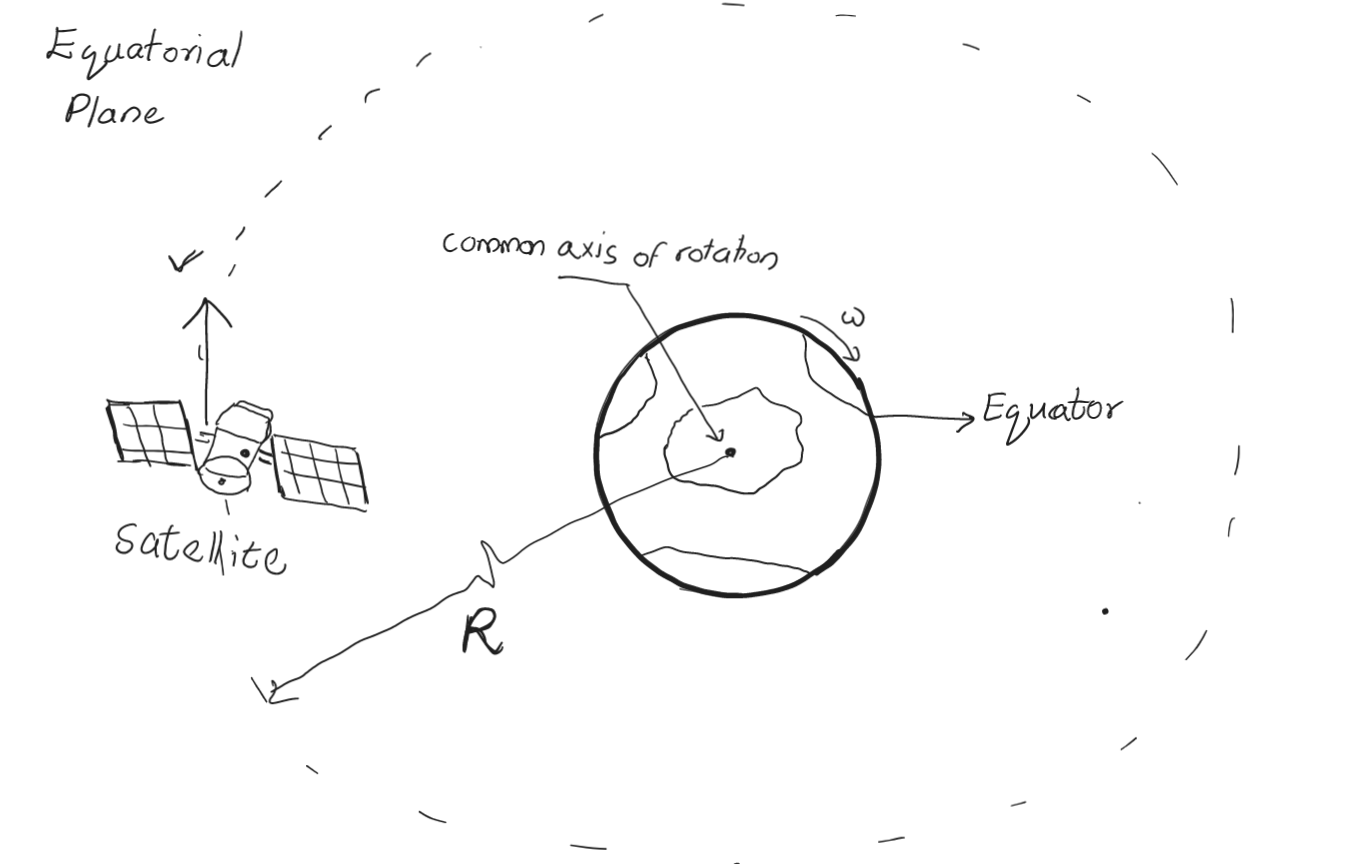 Equatorial
Plane
V
common axis of rotation
ω
Equator
Satellite
R